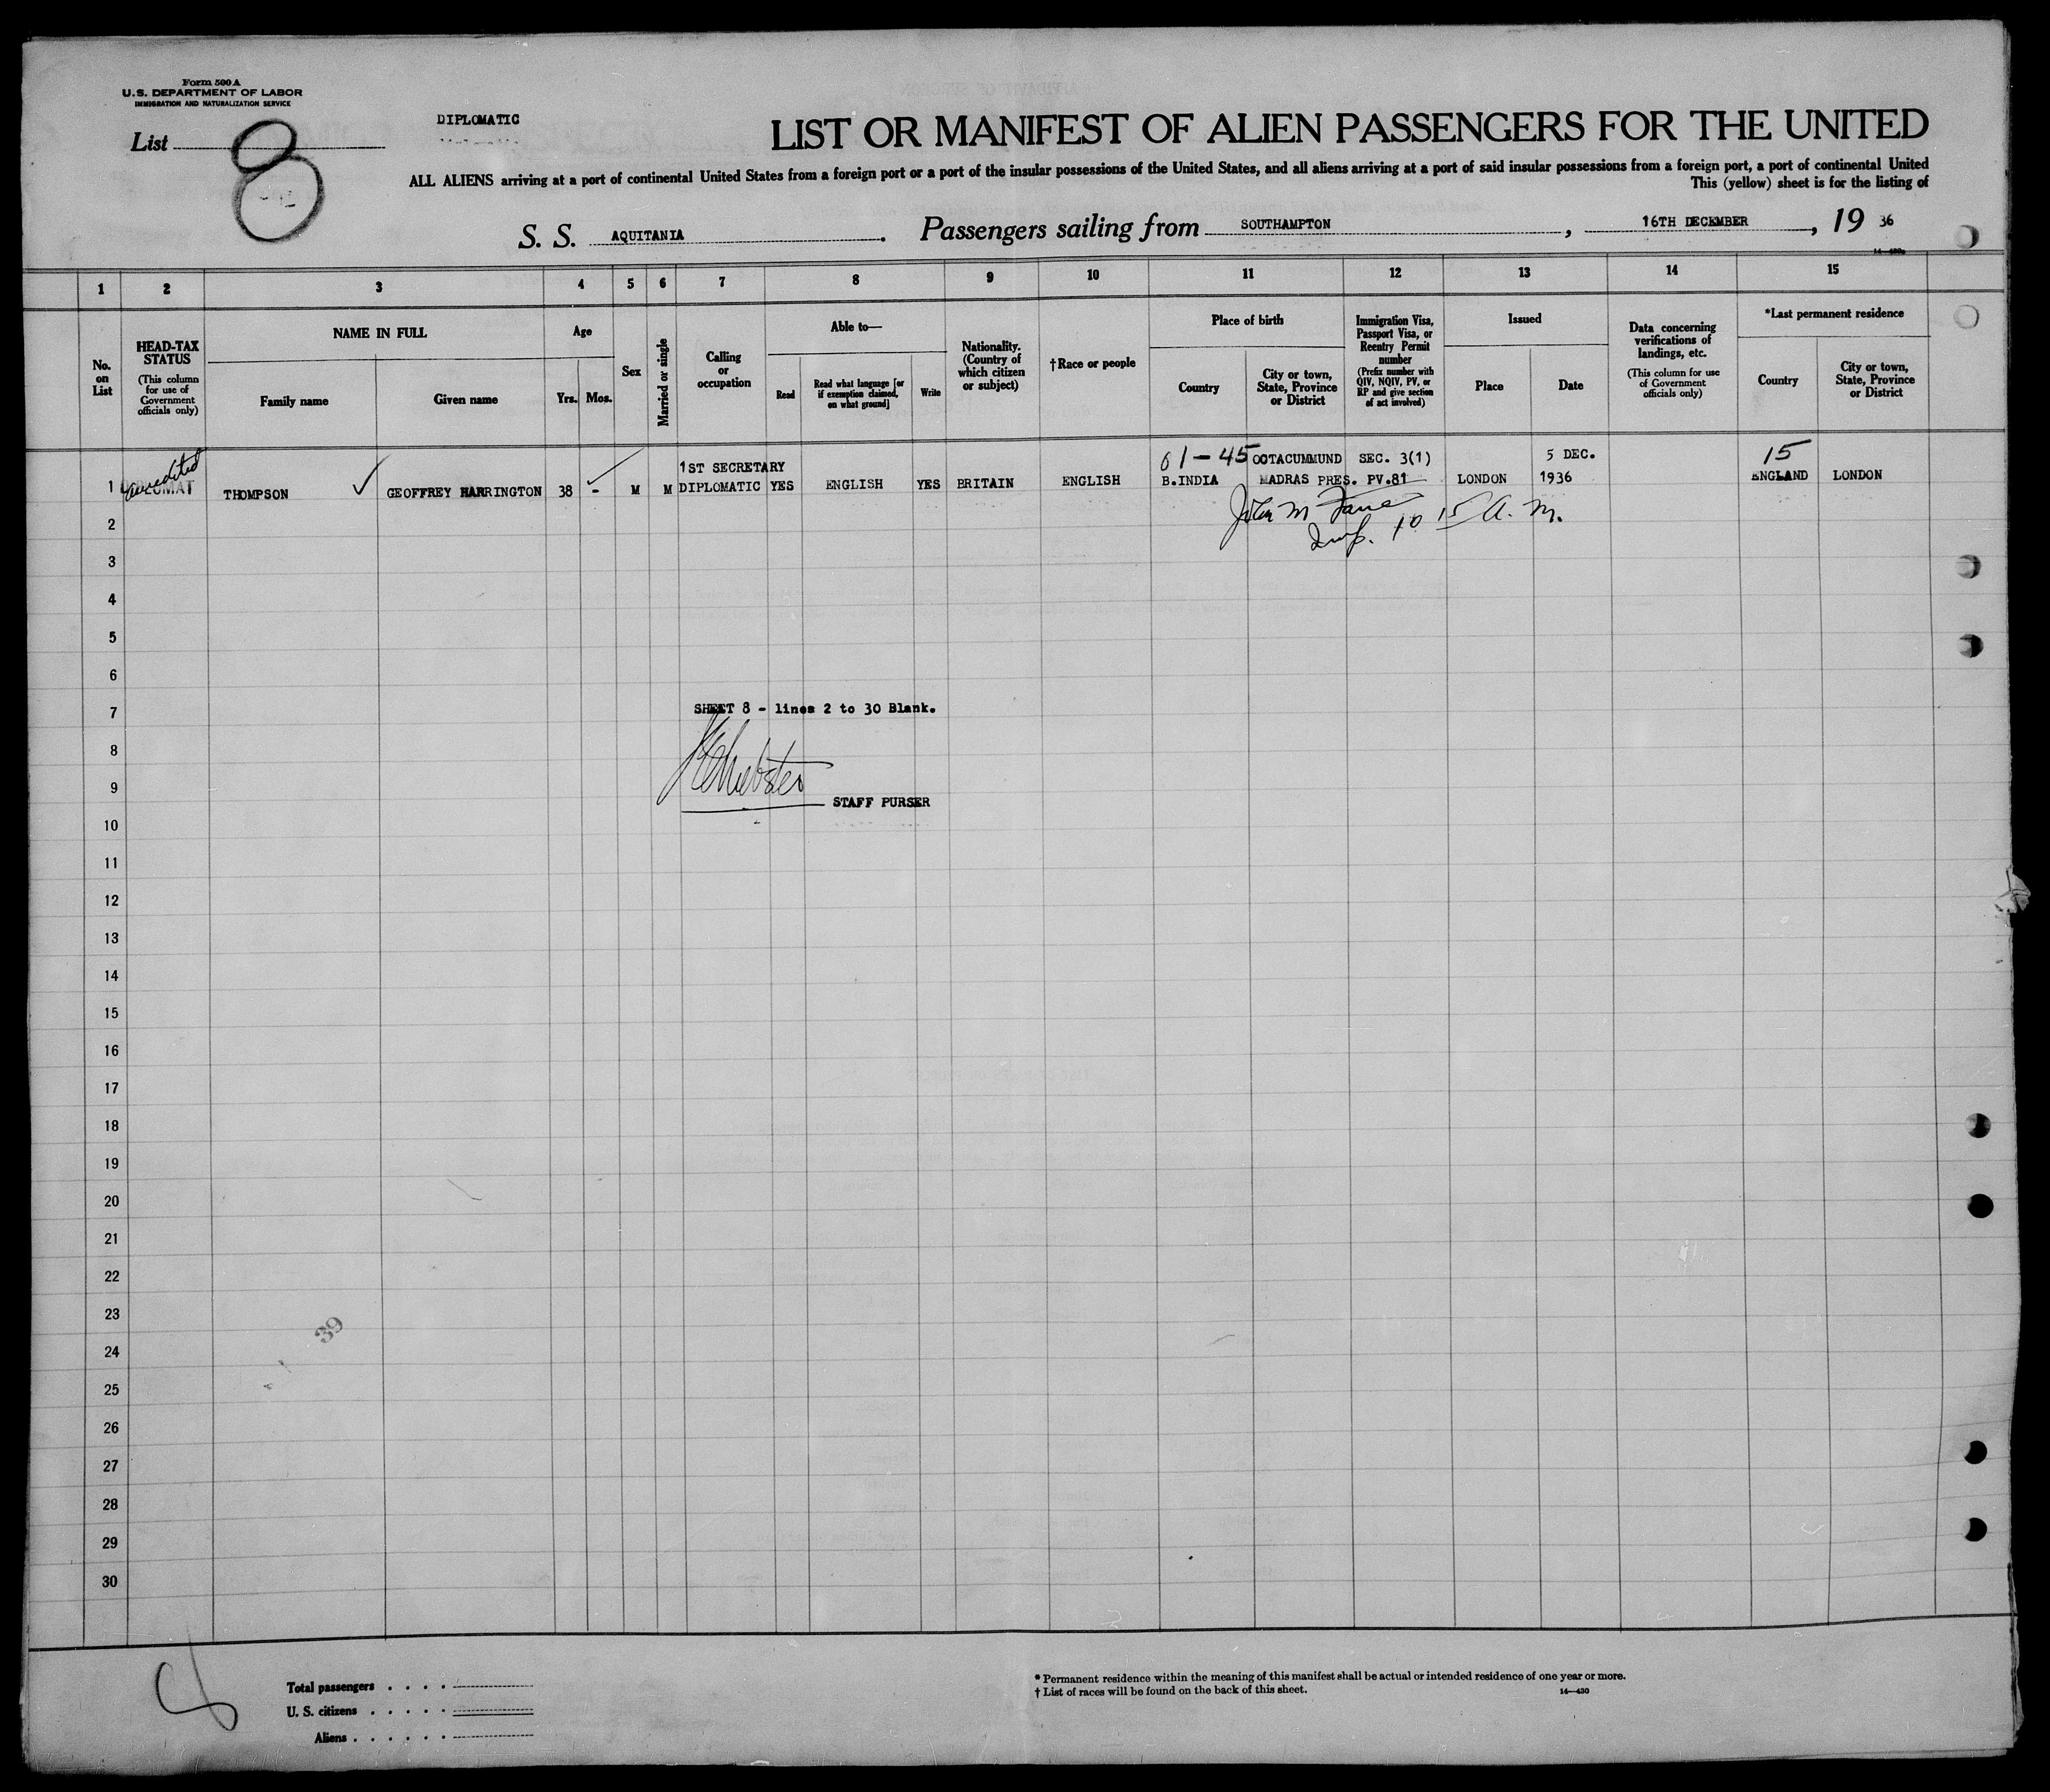 Form 500 A
U.S. DEPARTMENT OF LABOR
IMMIGRATION AND NATURALIZATION SERVICE
List 8
DIPLOMATIC
LIST OR MANIFEST OF ALIEN PASSENGERS FOR THE UNITED
ALL ALIENS arriving at a port of continental United States from a foreign port or a port of the insular possessions of the United States, and all aliens arriving at a port of said insular possessions from a foreign port, a port of continental United
This (yellow) sheet is for the listing of
S. S. AQUITANIA. Passengers sailing from SOUTHAMPTON, 16TH DECEMBER, 19 36
1 2 3 4 5 6 7 8 9 10 11 12 13 14 15
No. on List
HEAD-TAX STATUS (This column for use of Government officials only)
NAME IN FULL
Family name
Given name
Age
Yrs. Mos.
Sex
Married or single
Calling or occupation
Able to—
Read
Read what language [or if exemption claimed, on what ground]
Write
Nationality. (Country of which citizen or subject)
†Race or people
Place of birth
Country
City or town, State, Province or District
Immigration Visa, Passport Visa, or Reentry Permit number (Prefix number with QIV, NQIV, PV, or RP and give section of act involved)
Issued
Place
Date
Data concerning verifications of landings, etc. (This column for use of Government officials only)
*Last permanent residence
Country
City or town, State, Province or District
61-45 OOTACUMMUND SEC. 3(1) 5 DEC. 15
1ST SECRETARY
1 DIPLOMAT THOMPSON ✓ GEOFFREY HARRINGTON 38 - M M DIPLOMATIC YES ENGLISH YES BRITAIN ENGLISH B.INDIA MADRAS PRES. PV.81 LONDON 1936 ENGLAND LONDON
John M
Insp. 10 15 A. M.
2
3
4
5
6
7 SHEET 8 - lines 2 to 30 Blank.
8
Webster
9 STAFF PURSER
10
11
12
13
14
15
16
17
18
19
20
21
22
23
39
24
25
26
27
28
29
30
Total passengers
U. S. citizens
Aliens
* Permanent residence within the meaning of this manifest shall be actual or intended residence of one year or more.
† List of races will be found on the back of this sheet.
14—430